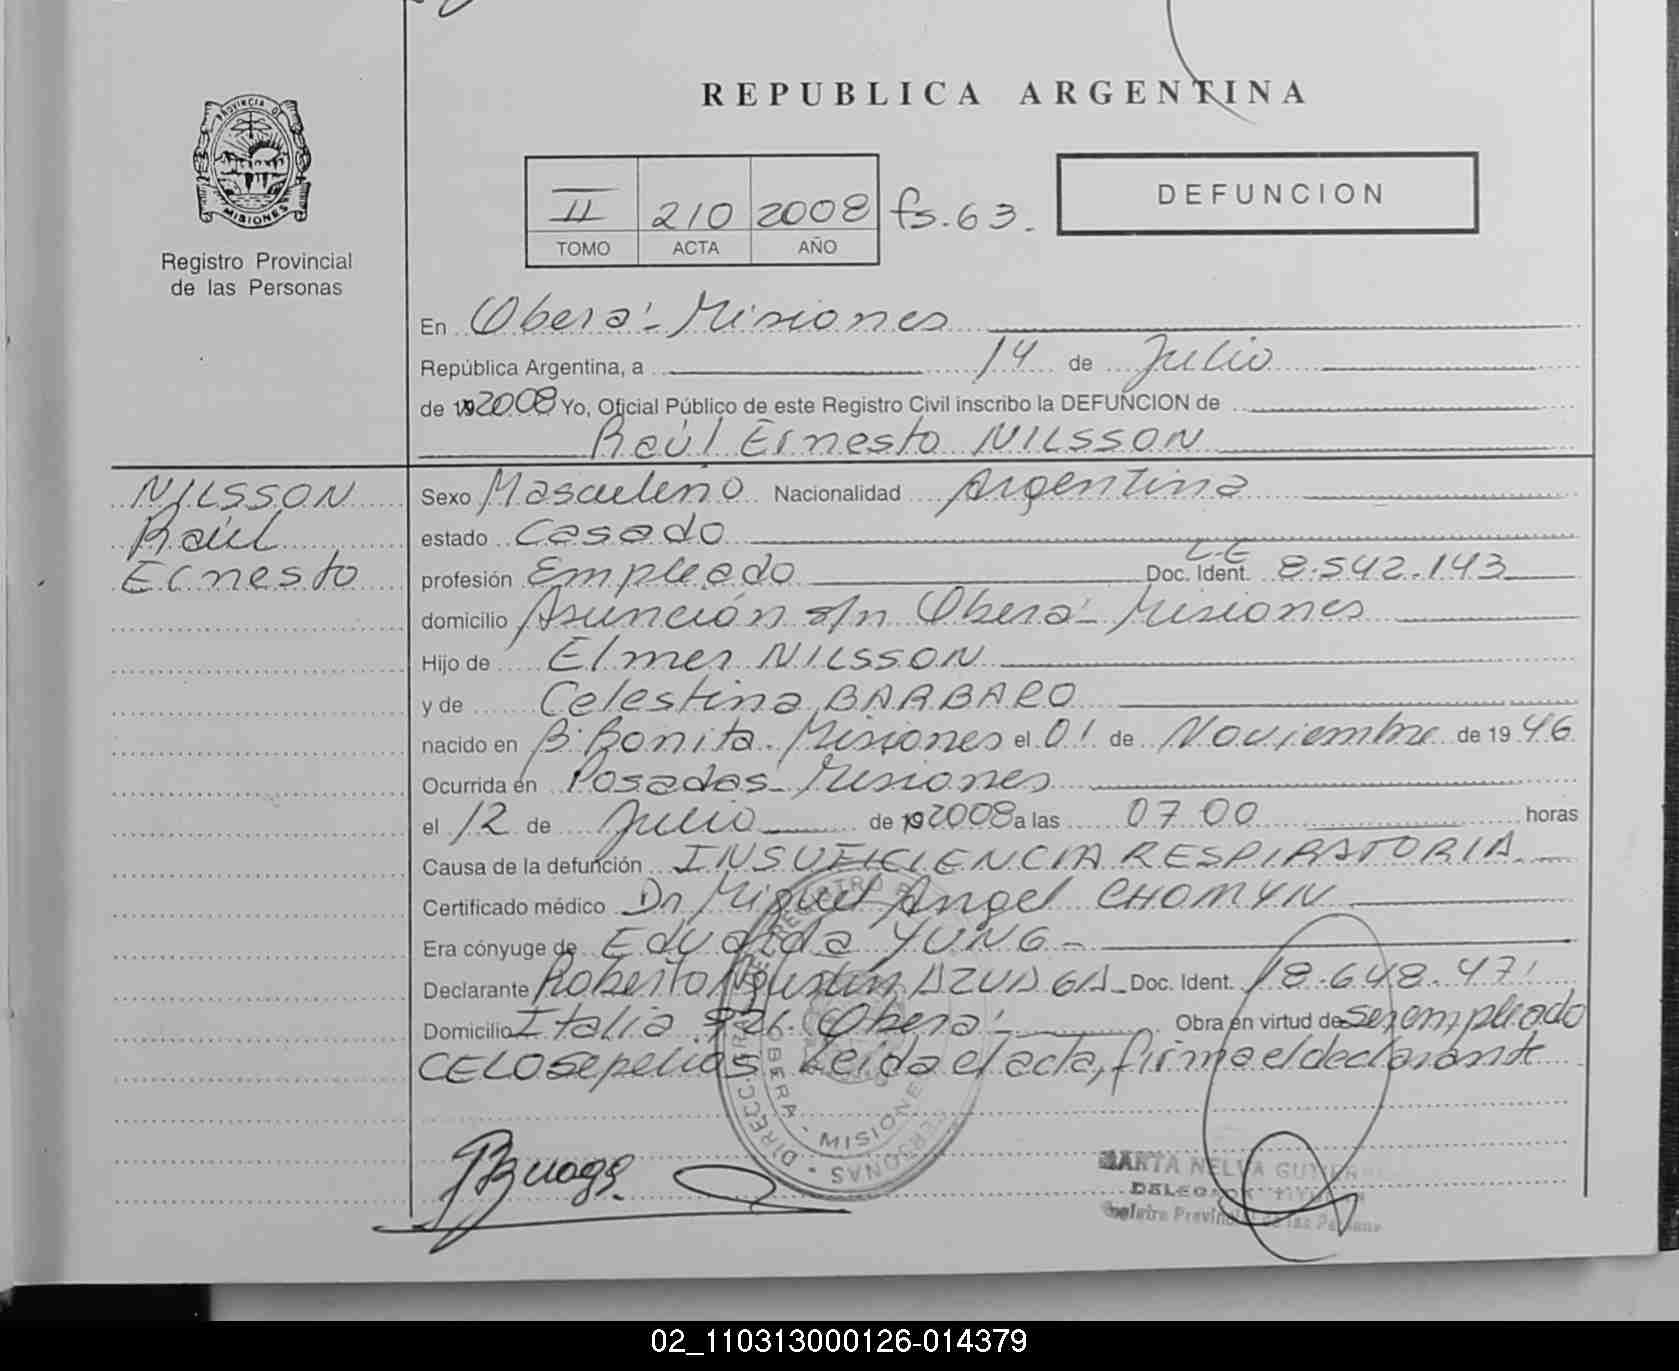 REPUBLICA ARGENTINA
PROVINCIA D
MISIONES
Registro Provincial
de las Personas
II 210 2008 fs. 63.
TOMO ACTA AÑO
DEFUNCION
En Oberá - Misiones
República Argentina, a 14 de Julio
de 19 2008 Yo, Oficial Público de este Registro Civil inscribo la DEFUNCION de
Raúl Ernesto NILSSON
NILSSON
Raúl
Ernesto
Sexo Masculino Nacionalidad Argentina
estado Casado
profesión Empleado Doc. Ident. L.E 8.542.143
domicilio Asunción s/n Oberá - Misiones
Hijo de Elmer NILSSON
y de Celestina BARBARO
nacido en B. Bonita. Misiones el 01 de Noviembre de 19 46
Ocurrida en Posadas - Misiones
el 12 de Julio de 19 2008 a las 07 00 horas
Causa de la defunción INSUFICIENCIA RESPIRATORIA.
Certificado médico Dr Miguel Angel CHOMYN
Era cónyuge de Eduarda YUNG -
Declarante Roberto Agustín AZUAGA - Doc. Ident. 18.648.471
Domicilio Italia 926. Oberá - Obra en virtud de ser empleado
CELO sepelios Leida el acta, firma el declarante
OBERA - MISIONES
DIRECC. PERSONAS
MARTA NELVA
Registro Provincial de las Personas
02_110313000126-014379